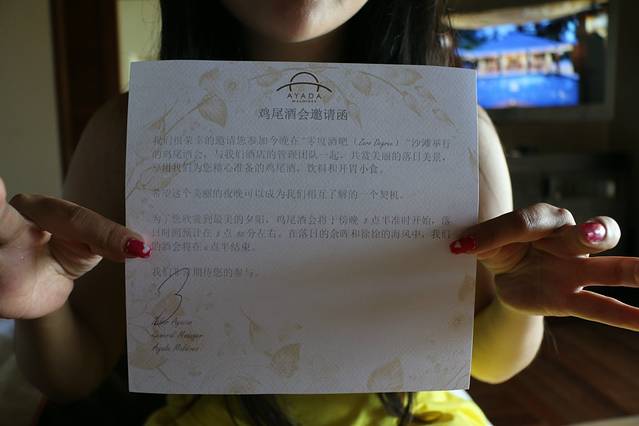 AYADA
MALDIVES
鸡尾酒会邀请函
我们很荣幸的邀请您参加今晚在“零度酒吧（Zero Degree）”沙滩举行
的鸡尾酒会，与我们酒店的管理团队一起，共赏美丽的落日美景，
享用我们为您精心准备的鸡尾酒，饮料和开胃小食。
希望这个美丽的夜晚可以成为我们相互了解的一个契机。
为了您欣赏到最美的夕阳，鸡尾酒会将于傍晚 5 点半准时开始，落
日时间预计在 5 点 50 分左右。在落日的余晖和徐徐的海风中，我们
的酒会将在 6 点半结束。
我们非常期待您的参与。
General Manager
Ayada Maldives